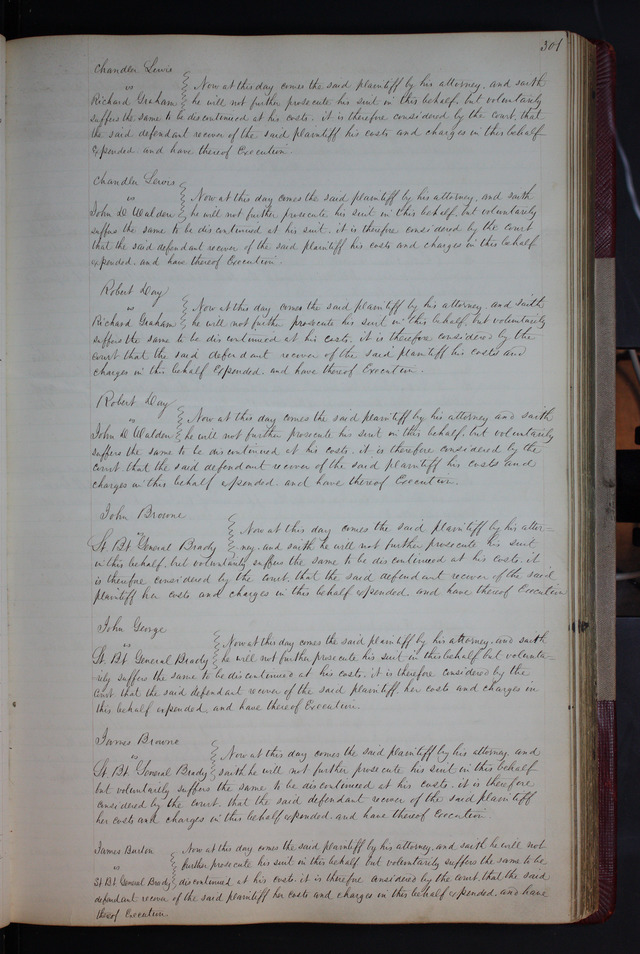 301
Chandler Lewis
vs
Now at this day comes the said plaintiff by his attorney, and saith
Richard Graham he will not further prosecute his suit in this behalf, but voluntarily
suffers the same to be discontinued at his costs. it is therefore considered by the court, that
the said defendant recover of the said plaintiff his costs and charges in this behalf
expended. and have thereof Execution.
Chandler Lewis
vs
Now at this day comes the said plaintiff by his attorney, and saith
John D Waldon he will not further prosecute his suit in this behalf, but voluntarily
suffers the same to be discontinued at his suit. it is therefore considered by the court
that the said defendant recover of the said plaintiff his costs and charges in this behalf
expended. and have thereof Execution.
Robert Day
vs
Now at this day comes the said plaintiff by his attorney and saith
Richard Graham he will not further prosecute his suit in this behalf, but voluntarily
suffers the same to be discontinued at his costs, it is therefore considered by the
court that the said defendant recover of the said plaintiff his costs and
charges in this behalf Expended. and have thereof Execution.
Robert Day
vs
Now at this day comes the said plaintiff by his attorney and saith
John D Waldon he will not further prosecute his suit in this behalf, but voluntarily
suffers the same to be discontinued at his costs. it is therefore considered by the
court, that the said defendant recover of the said plaintiff his costs and
charges in this behalf expended. and have thereof Execution.
John Browne
vs
Now at this day comes the said plaintiff by his attor-
St. Bt General Brady ney, and saith he will not further prosecute his suit
in this behalf, but voluntarily suffers the same to be discontinued at his costs. it
is therefore considered by the court, that the said defendant recover of the said
plaintiff her costs and charges in this behalf expended. and have thereof Execution
John George
vs
Now at this day comes the said plaintiff by his attorney, and saith
St. Bt General Brady he will not further prosecute his suit in this behalf but volunta-
rily suffers the same to be discontinued at his costs. it is therefore considered by the
court that the said defendant recover of the said plaintiff, her costs and charges in
this behalf expended, and have thereof Execution.
James Browne
vs
Now at this day comes the said plaintiff by his attorney, and
St. Bt. General Brady saith he will not further prosecute his suit in this behalf
but voluntarily suffers the same to be discontinued at his costs. it is therefore
considered by the court, that the said defendant recover of the said plaintiff
her costs and charges in this behalf expended. and have thereof execution.
James Burton
Now at this day comes the said plaintiff by his attorney, and saith he will not
vs
further prosecute his suit in this behalf but voluntarily suffers the same to be
St Bt General Brady discontinued at his costs. it is therefore considered by the court, that the said
defendant recover of the said plaintiff her costs and charges in this behalf expended, and have
thereof Execution.